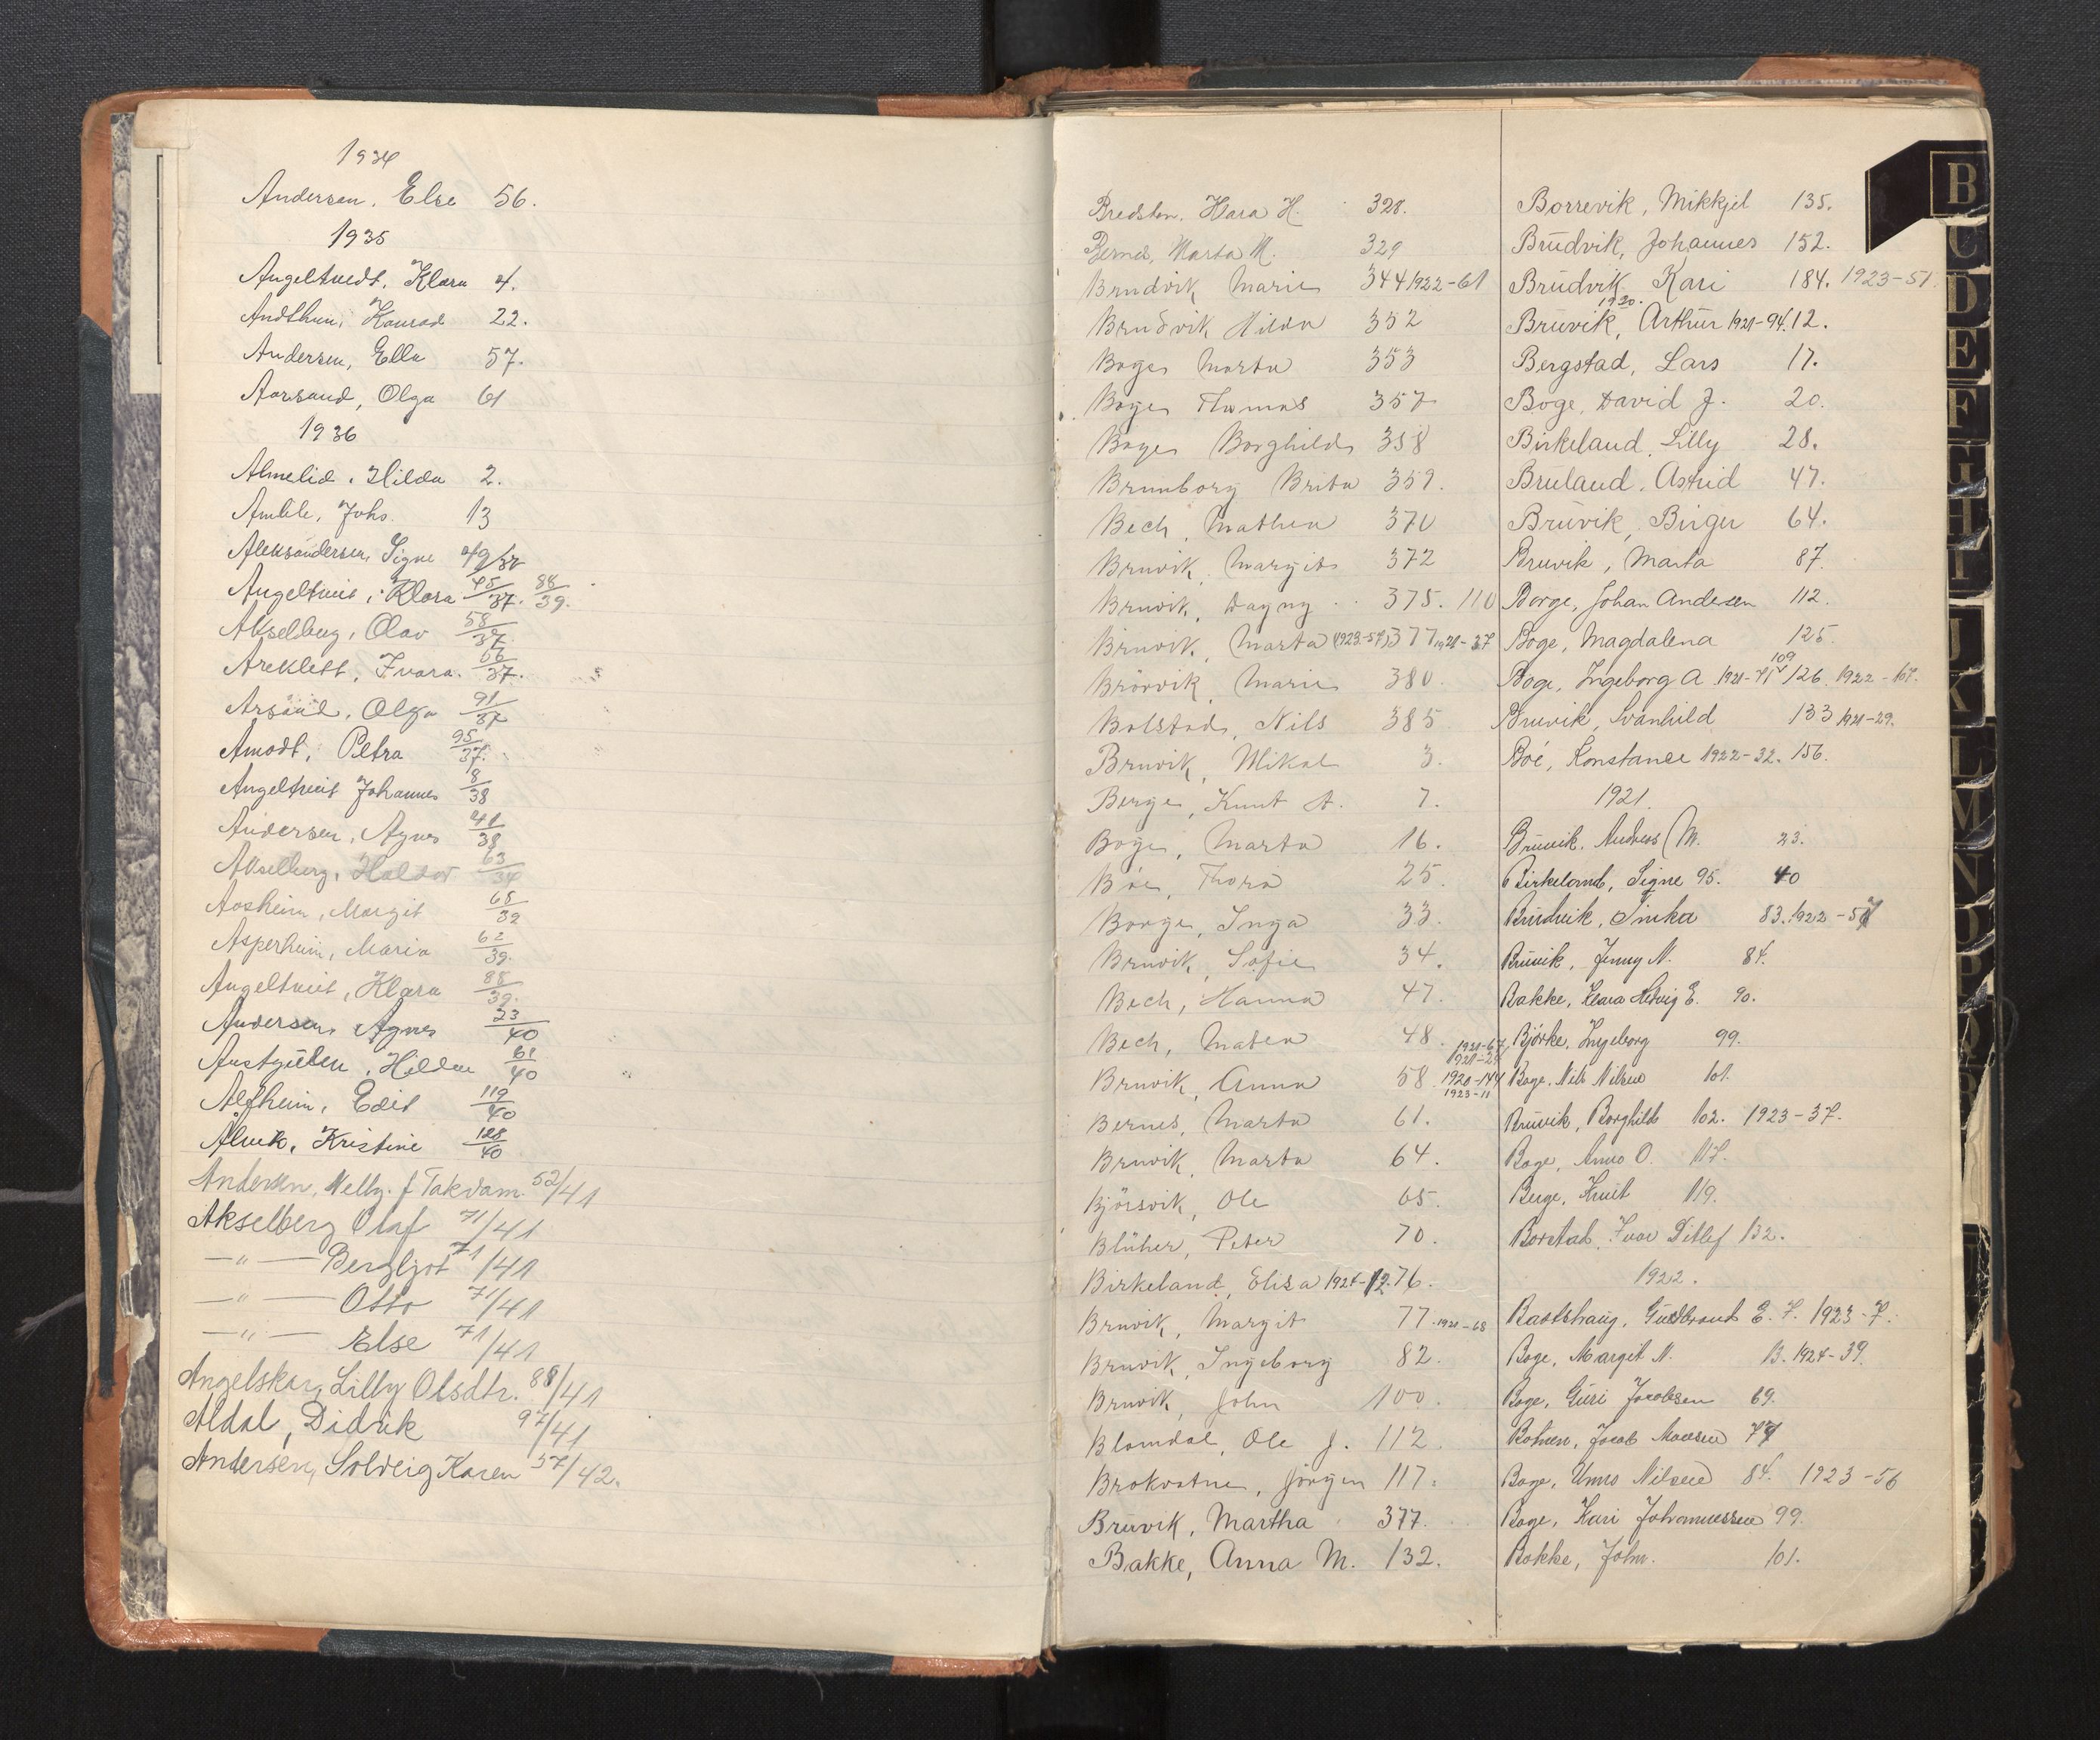 1934
Andersen, Else 56.
1935
Angeltvedt, Klara 4.
Andthun, Konrad 22.
Andersen, Ella 57.
Aarsand, Olga 61
1936
Almelid, Hilda 2.
Amble, Johs. 13
Aleksandersen, Signe 49/37
Angeltveit, Klara 45/37. 88/39.
Akselberg, Olav 58/37.
Areklett, Ivara. 56/37.
Arsand, Olga 91/37
Amodt, Petra 95/37.
Angeltveit Johannes 8/38
Andersen, Agnes 41/38
Akselberg, Haldor 63/34
Aasheim, Margit 65/39
Asperheim, Maria 62/39.
Angeltveit, Klara 88/39.
Andersen, Agnes 23/40
Austgulen, Hilda 61/40
Alfheim, Edit 119/40
Alvik, Kristine 128/40
Andersen, Nelly. f. Takvam. 52/41
Akselberg Olaf 71/41
—"— Bergljot 71/41
—"— Otto 71/41
—"— Else 71/41
Angelskar, Lilly Olsdtr. 88/41
Aldal, Didrik 97/41
Andersen, Solveig Karen 37/42.
Bredsten, Klara H. 328.
Bernes, Marta M. 329
Brudvik Marie 344 1922-61
Brudvik Hilda 352
Boge Marta 353
Boge Thomas 357
Boge Borghild 358
Brunborg Brita 359.
Bech, Mathea 370
Bruvik, Margit 372
Bruvik, Dagny 375. 110
Bruvik, Marta (1923-57) 377 1921-37
Brørvik Marie 380.
Bolstad, Nils 385
Bruvik, Mikal 3.
Berge, Knut A. 7.
Boge, Marta 16.
Böe, Thora 25.
Borge, Inga 33.
Bruvik, Sofie 34.
Bech, Hanna 47.
Bech, Matea 48.
1921-67
1921-25
Bruvik, Anna 58. 1920-144
1923-11
Bernes, Marta 61.
Bruvik, Marta 64.
Björsvik, Ole 65.
Blüher, Peter 70.
Birkeland, Elisa 1924-12. 76.
Bruvik, Margit 77. 1921-68
Bruvik, Ingeborg 82.
Bruvik, John 100.
Blomdal, Ole J. 112.
Brokvatne, Jörgen 117.
Bruvik, Martha 377.
Bakke, Anna M. 132.
B
C
D
E
F
G
H
I
J
K
L
M
N
O
P
R
Borrevik, Mikkjel 135.
Brudvik, Johannes 152.
Brudvik Kari 184. 1923-51.
1920.
Bruvik, Arthur 1921-94. 12.
Bergstad, Lars 17.
Boge, David J. 20.
Birkeland, Lilly 28.
Bruland, Astrid 47.
Bruvik, Birger 64.
Bruvik, Marta 87.
Borge, Johan Andersen 112.
Boge, Magdalena 125.
109
Boge, Ingeborg A. 1921-71 126. 1922-67.
Bruvik, Svanhild 133 1921-29.
Boé, Konstance 1922-32. 156.
1921.
Bruvik, Andreas M. 23.
Birkeland, Signe 95. 40
Brudvik, Sinka 83. 1922-57
Bruvik, Jenny N. 84.
Bakke, Klara Helvig E. 90.
Bjørke, Ingeborg 99.
Boge, Nils Nilsen 101.
Bruvik, Borghild 102. 1923-37.
Boge, Anna O. 117.
Berge, Knut 119.
Borstad, Ivar Ditlef 132.
1922.
Baatshaug, Gudbrand E. 7. 1923-7.
Boge, Margit N. 13. 1924-39
Boge, Guri Jacobsen 69.
Botnen, Jacob Monsen 77
Boge, Unns Nilsen 84. 1923-56
Boge, Kari Johannessen 99.
Bakke, John. 101.